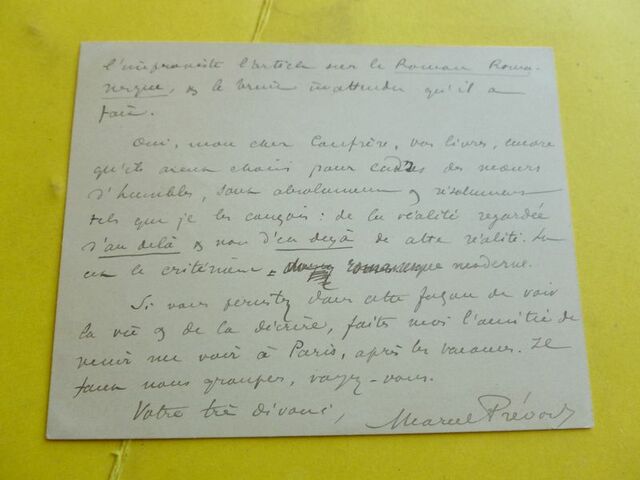 l'improviste l'article sur le Roman Roma-
nesque, & le bruit inattendu qu'il a
fait.
Oui, mon cher Confrère, vos livres, encore
qu'ils aient choisi pour cadres des mœurs
d'humbles, sont absolument & résolument
tels que je les conçois : de la réalité regardée
d'au delà & non d'en deçà de cette réalité. Là
est le critérium romanesque moderne.
Si vous persistez dans cette façon de voir
la vie & de la décrire, faites moi l'amitié de
venir me voir à Paris, après les vacances. Il
faut nous grouper, voyez-vous.
Votre très dévoué,
Marcel Prévost